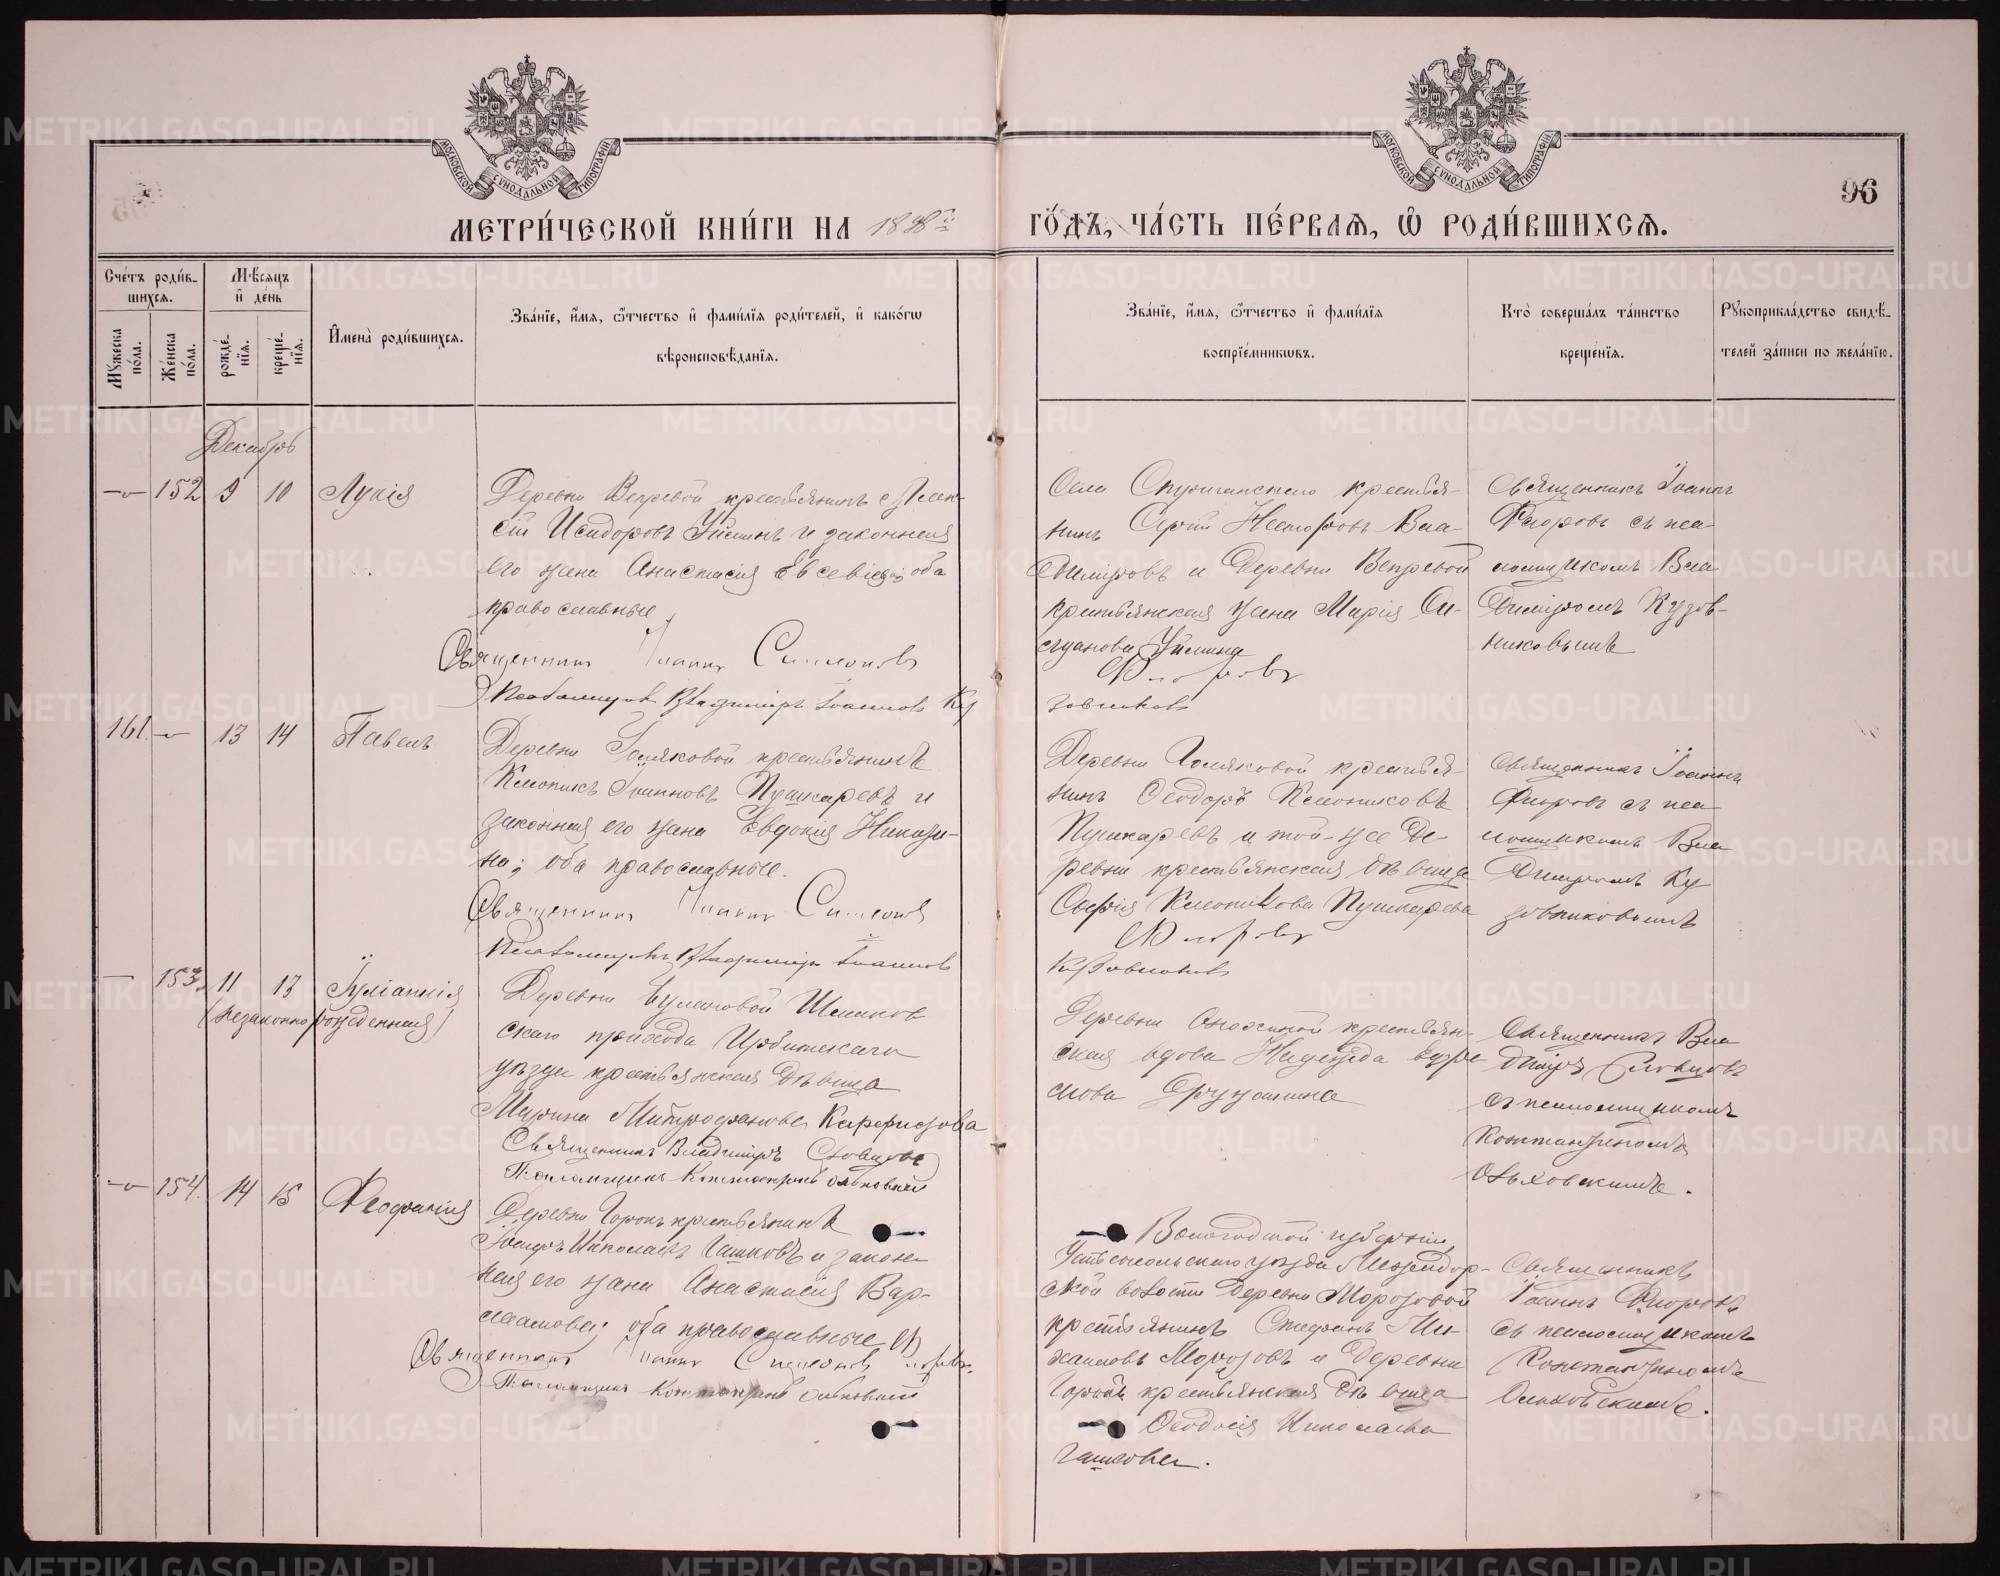 МОСКОВСКОЙ СѴНОДАЛЬНОЙ ТИПОГРАФІИ
МОСКОВСКОЙ СѴНОДАЛЬНОЙ ТИПОГРАФІИ
96
МЕТРИ́ЧЕСКОЙ КНИ́ГИ НА 1898 ГО́ДЪ, ЧА́СТЬ ПЕ́РВАѦ, Ѡ РОДИ́ВШИХСѦ.
Сче́тъ роди́в-
шихсѧ.
Мꙋ́жеска по́ла.
Же́нска по́ла.
Мѣ́сѧцъ и де́нь
рожде́-нїѧ.
креще́-нїѧ.
И҆мена̀ роди́вшихсѧ.
Зва́нїе, и҆́мѧ, ѻ҆́тчество и҆ фами́лїѧ роди́телей, и҆ како́гѡ
вѣроисповѣ́данїѧ.
Зва́нїе, и҆́мѧ, ѻ҆́тчество и҆ фами́лїѧ
воспрїе́мникѡвъ.
Кто̀ соверша́лъ та́инство
креще́нїѧ.
Рꙋкоприкла́дство свидѣ́-
телей за́писи по жела́нїю.
Декабрь
152 9 10 Лукія
Деревни Вепревой крестьянинъ Алек-
сій Исидоровъ Уйминъ и законная
его жена Анастасія Евсевіева; оба
православные
Священникъ Іоаннъ Симеоновъ Флоровъ
Псаломщикъ Владиміръ Іоанновъ Кузовниковъ
Села крестья-
нинъ Сергій Несторовъ Вла-
диміровъ и Деревни Вепревой
крестьянская жена Марія Сте-
Уймина
Священникъ Іоаннъ
Флоровъ съ пса-
ломщикомъ Вла-
диміромъ Кузов-
никовымъ
161 13 14 Павелъ
Деревни Голяковой крестьянинъ
Клеоникъ Іоанновъ Пушкаревъ и
законная его жена Евдокія
оба православные.
Священникъ Іоаннъ Симеоновъ Флоровъ
Псаломщикъ Владиміръ Іоанновъ Кузовниковъ
Деревни Голяковой крестья-
нинъ Ѳеодоръ Клеониковъ
Пушкаревъ и той-же де-
ревни крестьянская дѣвица
Софія Клеоникова Пушкарева
Священникъ Іоаннъ
Флоровъ съ пса-
ломщикомъ Вла-
диміромъ Ку
зовниковымъ
153 11 13 Іуліаннія
(незаконнорожденная)
Деревни Булановой
скаго прихода Ирбитскаго
уѣзда крестьянская дѣвица
Марина Митрофанова
Священникъ Владиміръ Словцовъ
Псаломщикъ Константинъ Ольховскій
Деревни крестьян-
ская вдова Надежда
Дружинина
Священникъ Вла
диміръ Словцовъ
съ псаломщикомъ
Константиномъ
Ольховскимъ.
154. 14 15 Феофанія
Деревни Горокъ крестьянинъ
Николаевъ Гашковъ и закон-
ная его жена Анастасія Вар-
лаамова; оба православные
Священникъ Іоаннъ Симеоновъ Флоровъ
Псаломщикъ Константинъ Ольховскій
Вологодской губерніи,
Устьсысольскаго уѣзда
ской волости деревни Морозовой
крестьянинъ Стефанъ Ми-
хаиловъ Морозовъ и Деревни
Горокъ крестьянская дѣвица
Ѳеодосія Николаева
Гашкова.
Священникъ
Іоаннъ Флоровъ
съ псаломщикомъ
Константиномъ
Ольховскимъ.
METRIKI.GASO-URAL.RU